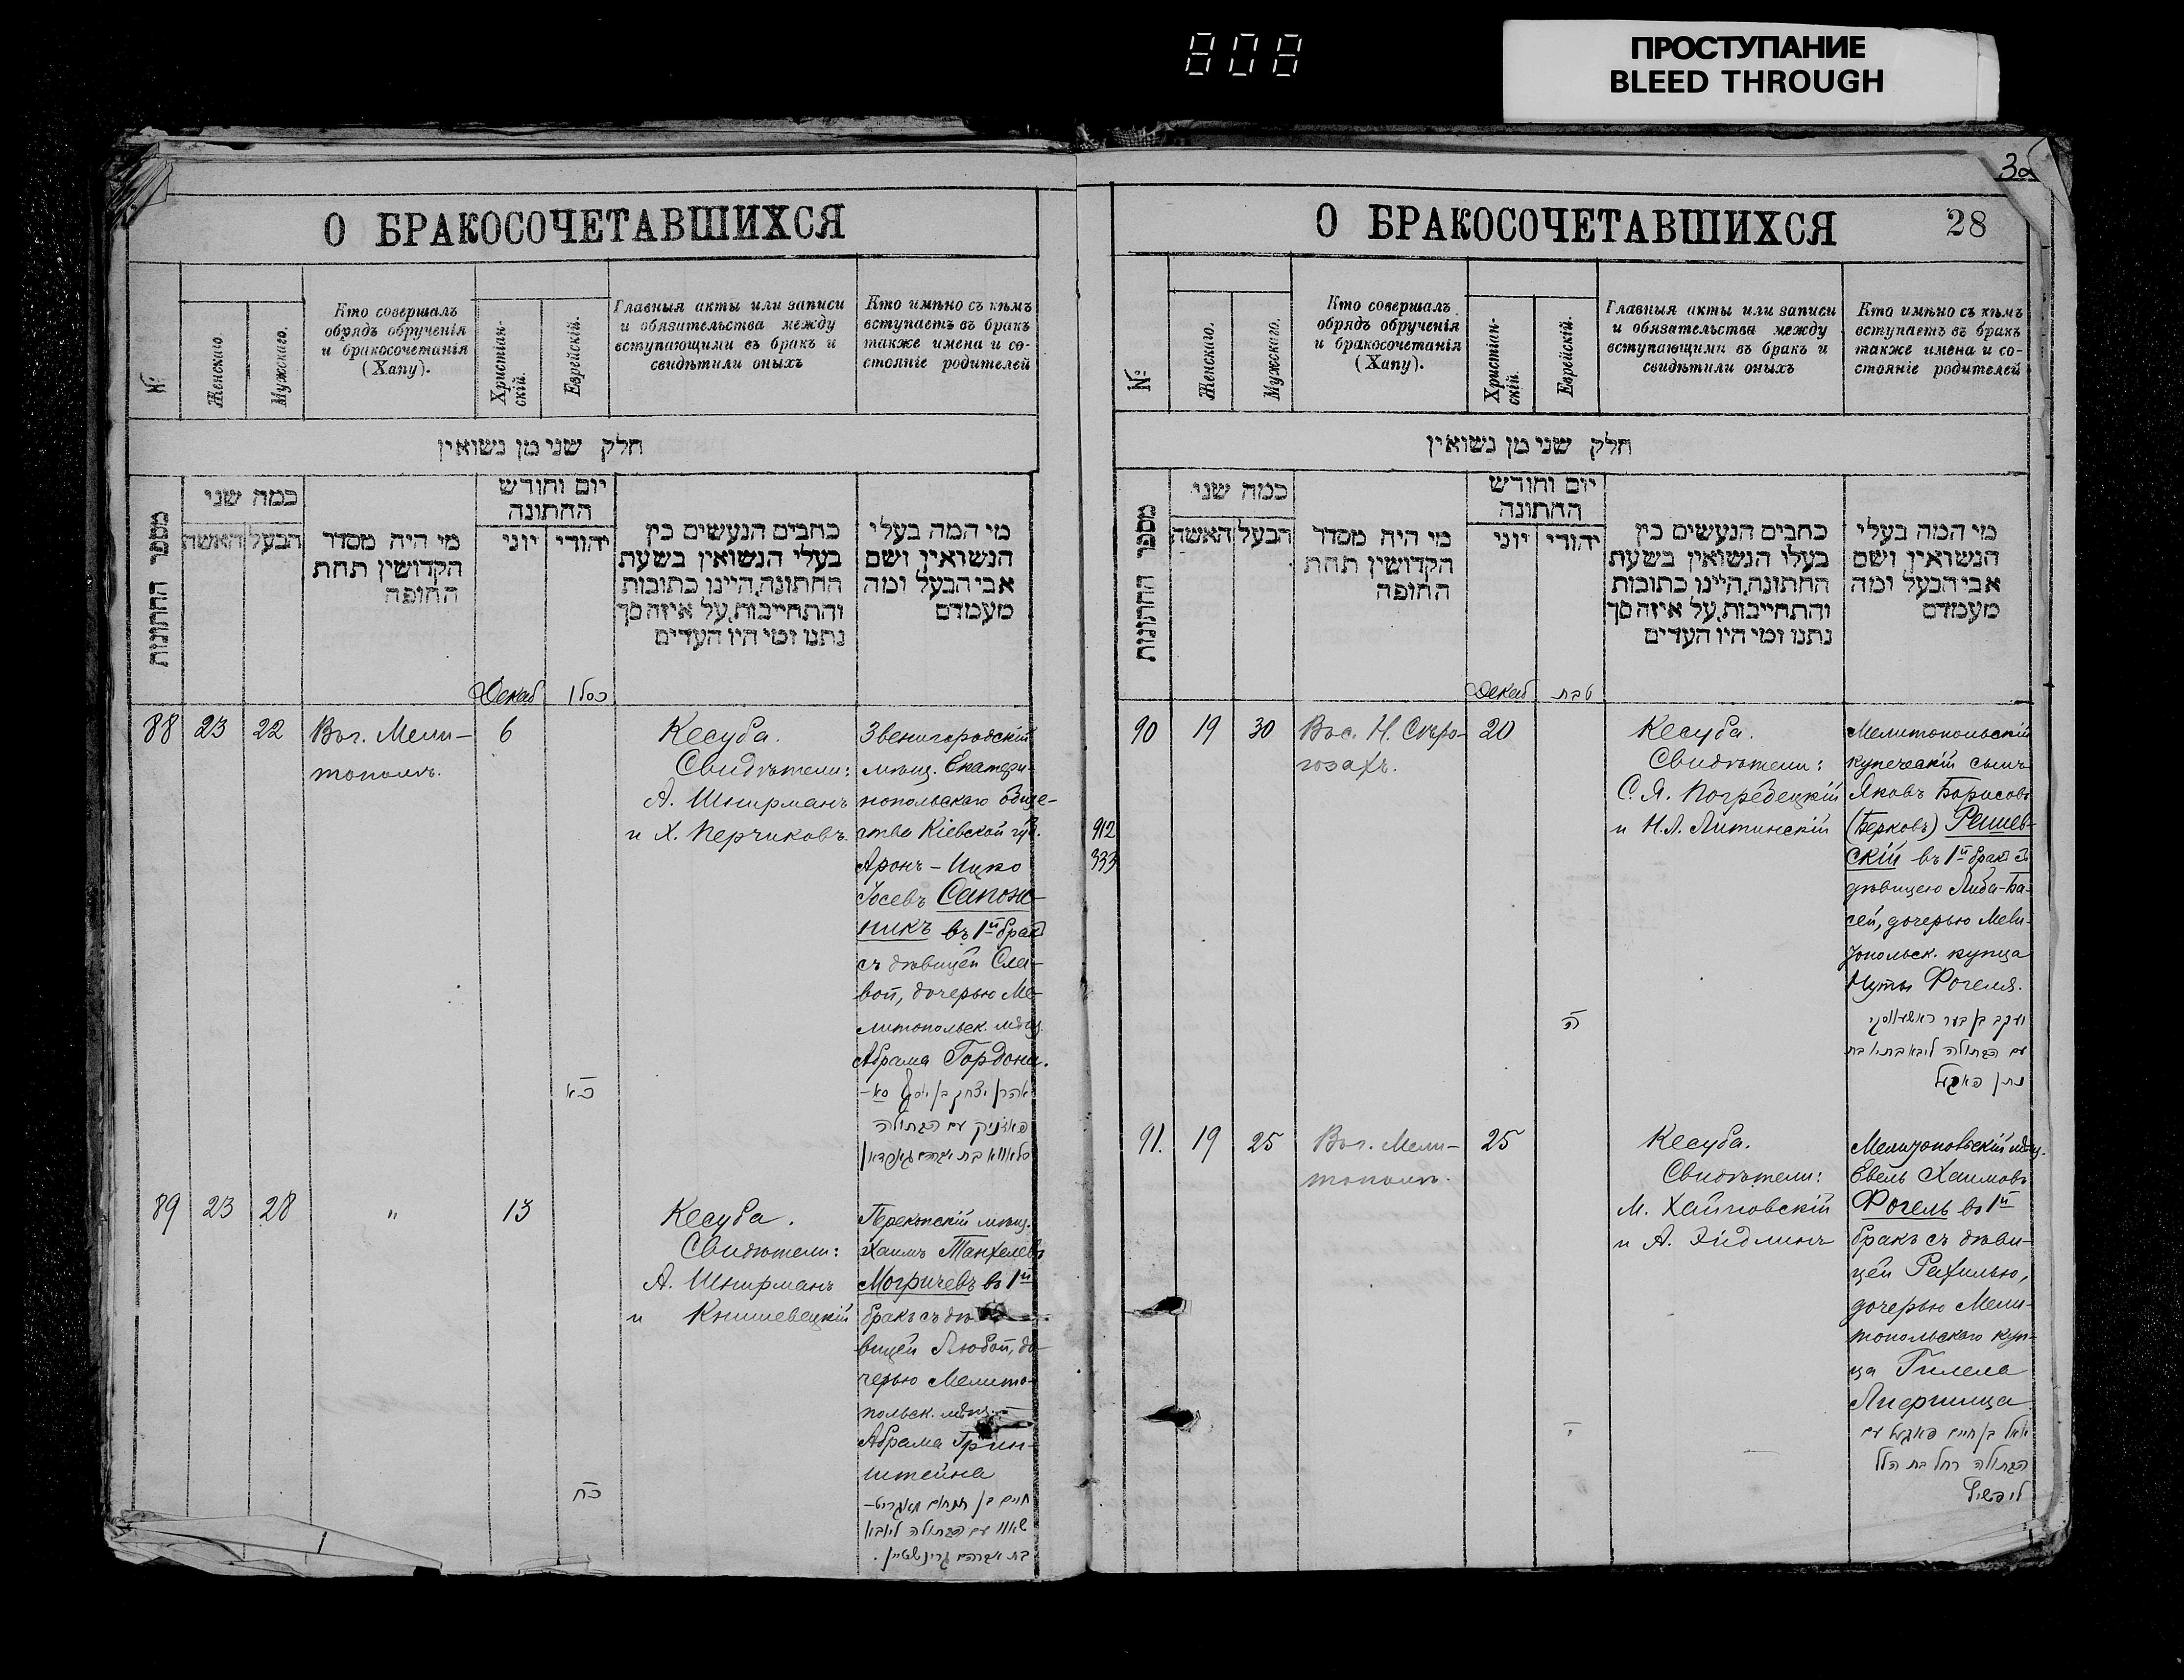 808
ПРОСТУПАНИЕ
BLEED THROUGH
О БРАКОСОЧЕТАВШИХСЯ
№
Женскаго.
Мужскаго.
Кто совершалъ
обрядъ обрученія
и бракосочетанія
(Хапу).
Христіан-
скій.
Еврейскій.
Главныя акты или записи
и обязательства между
вступающими въ бракъ и
свидѣтили оныхъ
Кто имѣно съ кѣмъ
вступаетъ въ бракъ
также имена и со-
стояніе родителей
חלק שני מן נשואין
מספר החתונות
כמה שני
האשה
הבעל
מי היה מסדר
הקדושין תחת
החופה
יום וחודש
החתונה
יוני
יהודי
כתבים הנעשים בין
בעלי הנשואין בשעת
החתונה, היינו כתובות
והתחייבות, על איזה סך
נתנו ומי היו העדים
מי המה בעלי
הנשואין ושם
אבי הבעל ומה
מעמדם
Декаб
כסלו
88
23
22
Въ г. Мели-
тополѣ.
6
כא
Кесуба.
Свидѣтели:
А. Шнирманъ
и Х. Перчиковъ.
Звенигородскій
мѣщ. Екатери-
нопольскаго обще-
ства Кіевской губ.
Аронъ-Ицко
Іосевъ Сапож-
никъ въ 1й бракъ
съ дѣвицей Сла-
вой, дочерью Ме-
литопольск. мѣщ.
Абрама Гордона.
אהרן יצחק בן יוסף סא-
פאזניק עם הבתולה
סלאווא בת אברהם גארדאן
89
23
28
"
13
כח
Кесуба.
Свидѣтели:
А. Шнирманъ
и Книшевецкій
Перекопскій мѣщ.
Хаимъ Танхелевъ
Могричевъ въ 1й
бракъ съ дѣ-
вицей Любой, до-
черью Мелито-
польск. мѣщ.
Абрама Грин-
штейна
חיים בן תנחום
עם הבתולה ליובא
בת אברהם גרינשטיין.
3а
О БРАКОСОЧЕТАВШИХСЯ
28
№:
Женскаго.
Мужскаго.
Кто совершалъ
обрядъ обрученія
и бракосочетанія
(Хапу).
Христіан-
скій.
Еврейскій.
Главныя акты или записи
и обязательства между
вступающими въ бракъ и
свидѣтили оныхъ
Кто имѣно съ кѣмъ
вступаетъ въ бракъ
также имена и со-
стояніе родителей
חלק שני מן נשואין
מספר החתונות
כמה שני
האשה
הבעל
מי היה מסדר
הקדושין תחת
החופה
יום וחודש
החתונה
יוני
יהודי
כתבים הנעשים בין
בעלי הנשואין בשעת
החתונה, היינו כתובות
והתחייבות, על איזה סך
נתנו ומי היו העדים
מי המה בעלי
הנשואין ושם
אבי הבעל ומה
מעמדם
Декаб
טבת
912
333
90
19
30
Въ с. Н. Сѣро-
гозахъ.
20
ה
Кесуба.
Свидѣтели:
С. Я. Погребецкій
и Н. Л. Литинскій
Мелитопольскій
купеческій сынъ
Яковъ Борисовъ
(Берковъ) Решев-
скій въ 1й бракъ съ
дѣвицею Либа-Ба-
сей, дочерью Мели-
топольск. купца
Нуты Фогеля.
יעקב בן בער ראשעווסקי
עם הבתולה ליבא בתיא בת
נתן פאגעל
91.
19
25
Въ г. Мели-
тополѣ.
25
י
Кесуба.
Свидѣтели:
М. Хайновскій
и А. Эйдлинъ
Мелитопольскій мѣщ.
Евель Хаимовъ
Фогель въ 1й
бракъ съ дѣви-
цей Рахилью,
дочерью Мели-
топольскаго куп-
ца Гилела
Лифшица
יואל בן חיים פאגעל עם
הבתולה רחל בת הלל
ליפשיץ